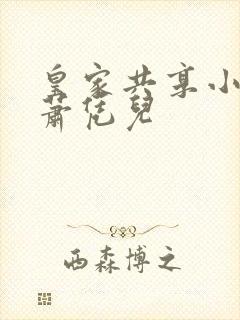 皇家共享小
萧恁儿
西森博之